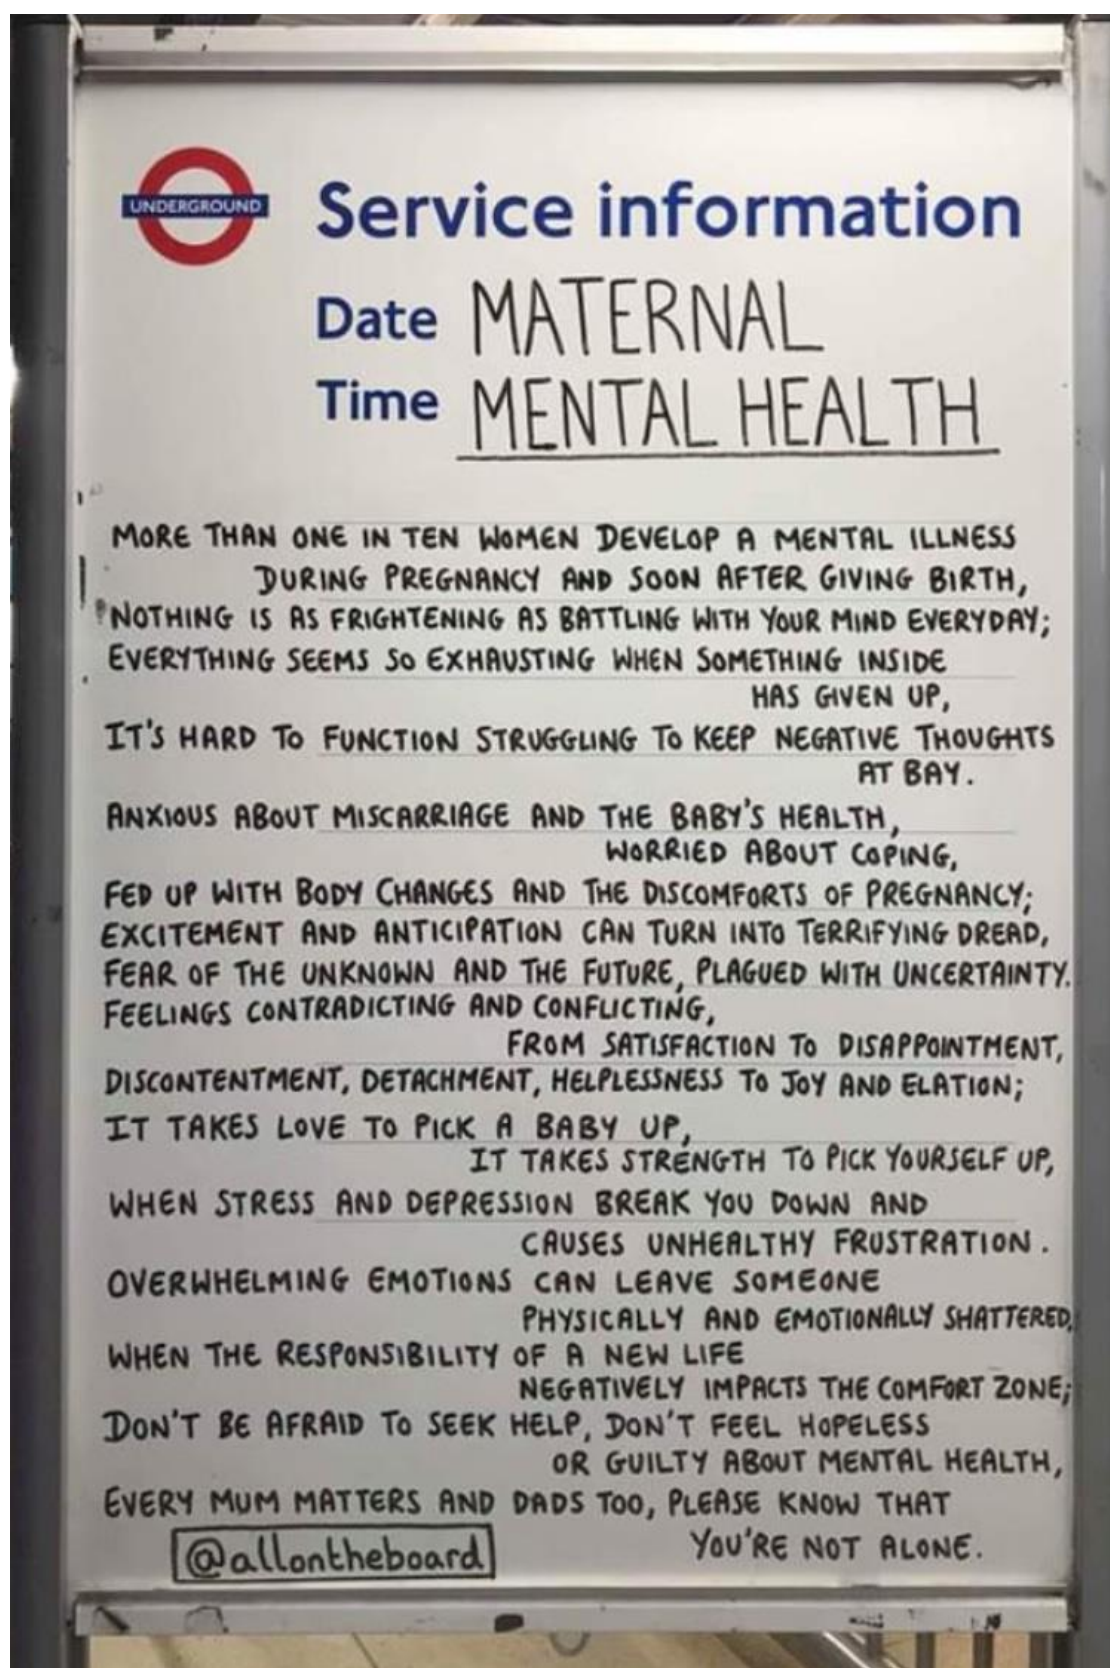 UNDERGROUND
Service information
Date MATERNAL
Time MENTAL HEALTH
MORE THAN ONE IN TEN WOMEN DEVELOP A MENTAL ILLNESS
DURING PREGNANCY AND SOON AFTER GIVING BIRTH,
NOTHING IS AS FRIGHTENING AS BATTLING WITH YOUR MIND EVERYDAY;
EVERYTHING SEEMS SO EXHAUSTING WHEN SOMETHING INSIDE
HAS GIVEN UP,
IT'S HARD TO FUNCTION STRUGGLING TO KEEP NEGATIVE THOUGHTS
AT BAY.
ANXIOUS ABOUT MISCARRIAGE AND THE BABY'S HEALTH,
WORRIED ABOUT COPING,
FED UP WITH BODY CHANGES AND THE DISCOMFORTS OF PREGNANCY;
EXCITEMENT AND ANTICIPATION CAN TURN INTO TERRIFYING DREAD,
FEAR OF THE UNKNOWN AND THE FUTURE, PLAGUED WITH UNCERTAINTY.
FEELINGS CONTRADICTING AND CONFLICTING,
FROM SATISFACTION TO DISAPPOINTMENT,
DISCONTENTMENT, DETACHMENT, HELPLESSNESS TO JOY AND ELATION;
IT TAKES LOVE TO PICK A BABY UP,
IT TAKES STRENGTH TO PICK YOURSELF UP,
WHEN STRESS AND DEPRESSION BREAK YOU DOWN AND
CAUSES UNHEALTHY FRUSTRATION.
OVERWHELMING EMOTIONS CAN LEAVE SOMEONE
PHYSICALLY AND EMOTIONALLY SHATTERED,
WHEN THE RESPONSIBILITY OF A NEW LIFE
NEGATIVELY IMPACTS THE COMFORT ZONE;
DON'T BE AFRAID TO SEEK HELP, DON'T FEEL HOPELESS
OR GUILTY ABOUT MENTAL HEALTH,
EVERY MUM MATTERS AND DADS TOO, PLEASE KNOW THAT
YOU'RE NOT ALONE.
@allontheboard